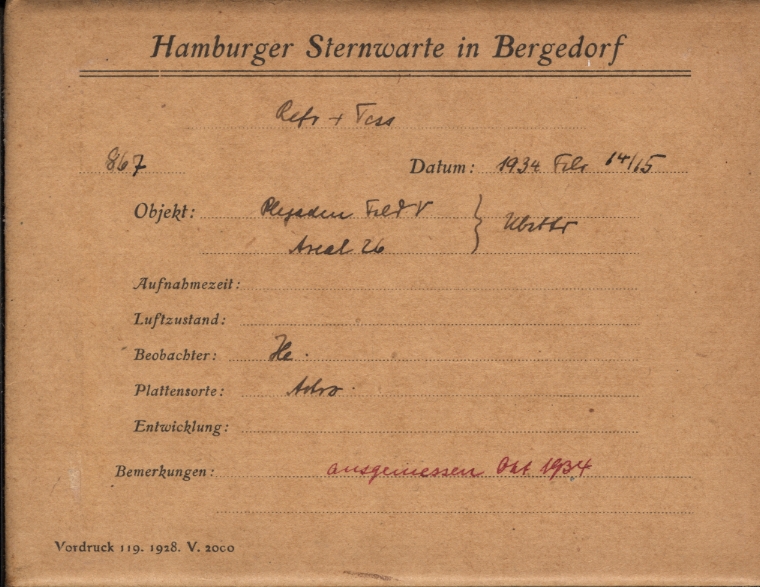 Hamburger Sternwarte in Bergedorf
Refr + Tess
867 Datum: 1934 Febr 14/15
Objekt: Plejaden Feld V
Areal 26
Aufnahmezeit:
Luftzustand:
Beobachter: He.
Plattensorte: Astro.
Entwicklung:
Bemerkungen: ausgemessen Okt 1934
Vordruck 119. 1928. V. 2000